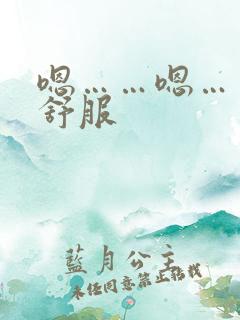 嗯……嗯…
舒服
藍月公主
未经同意禁止转载